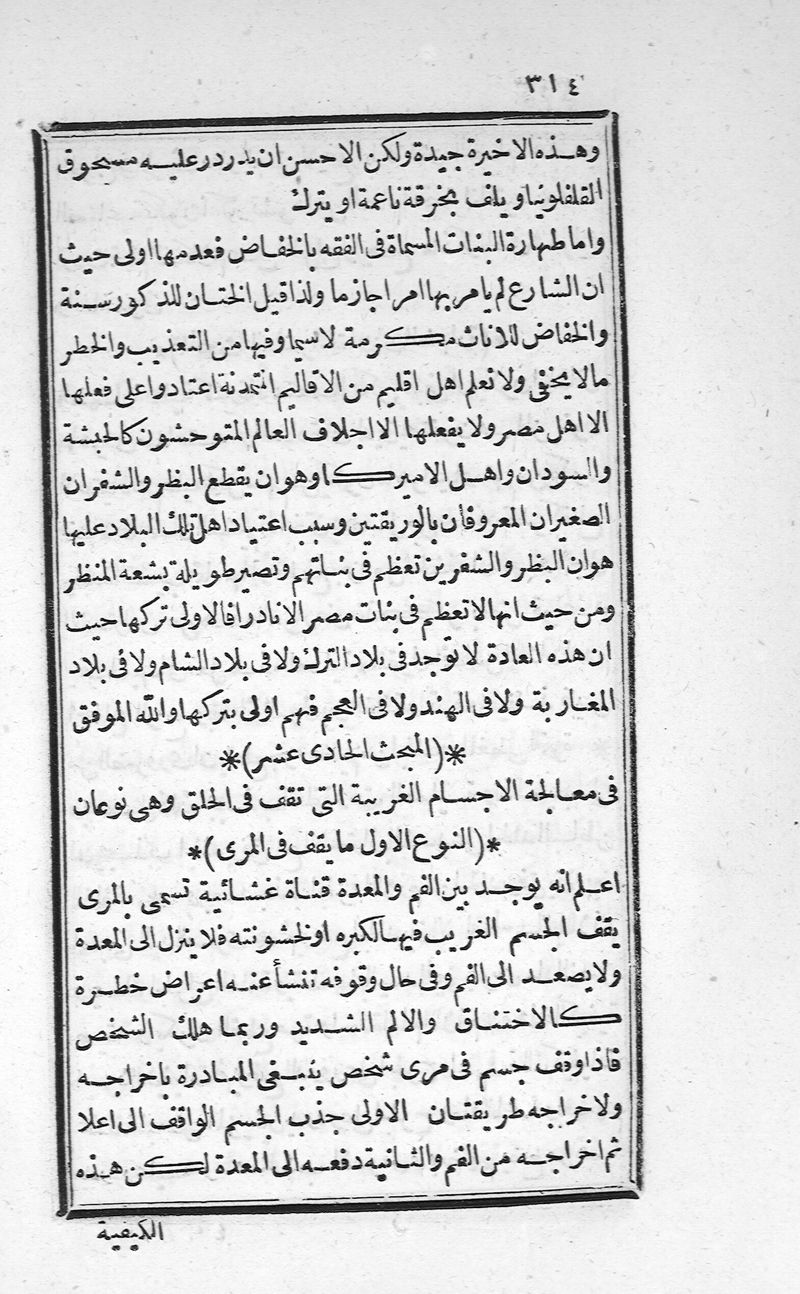 ٣١٤
وهذه الاخيرة جيدة ولكن الاحسن ان يدردر عليه مسحوق
القلفلونيا ويلف بخرقة ناعمة او يترك
واما طهارة البنات المسماة فى الفقه بالخفاض فعدمها اولى حيث
ان الشارع لم يامر بها امرا جازما ولذا قيل الختان للذكور سنة
والخفاض للاناث مكرمة لاسيما وفيها من التعذيب والخطر
مالا يخفى ولا نعلم اهل اقليم من الاقاليم المتمدنة اعتادوا على فعلها
الا اهل مصر ولا يفعلها الا اجلاف العالم المتوحشون كالحبشة
والسودان واهل الاميركا وهو ان يقطع البظر والشفران
الصغيران المعروفان بالوريقتين وسبب اعتياد اهل تلك البلاد عليها
هو ان البظر والشفرين تعظم فى بناتهم وتصير طويلة بشعة المنظر
ومن حيث انها لا تعظم فى بنات مصر الا نادرا فالاولى تركها حيث
ان هذه العادة لا توجد فى بلاد الترك ولا فى بلاد الشام ولا فى بلاد
المغاربة ولا فى الهند ولا فى العجم فهم اولى بتركها والله الموفق
*(المبحث الحادى عشر)*
فى معالجة الاجسام الغريبة التى تقف فى الحلق وهى نوعان
*(النوع الاول ما يقف فى المرى)*
اعلم انه يوجد بين الفم والمعدة قناة غشائية تسمى بالمرى
يقف الجسم الغريب فيها لكبره او لخشونته فلا ينزل الى المعدة
ولا يصعد الى الفم وفى حال وقوفه تنشأ عنه اعراض خطرة
كالاختناق والالم الشديد وربما هلك الشخص
فاذا وقف جسم فى مرى شخص ينبغى المبادرة باخراجه
ولاخراجه طريقتان الاولى جذب الجسم الواقف الى اعلا
ثم اخراجه من الفم والثانية دفعه الى المعدة لكن هذه
الكيفية